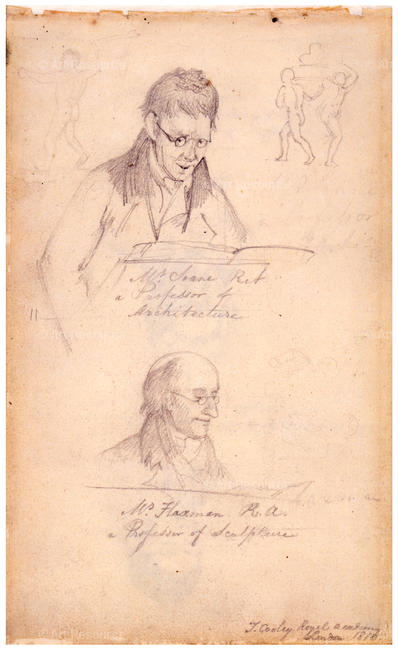 Mr. Soane R.A
a Professor of
Architecture
Mr. Flaxman R.A.
a Professor of Sculpture
T. Cooley Royal Academy
London 1810.